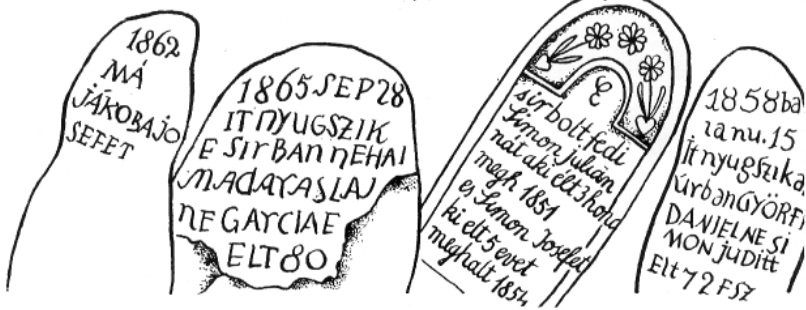 1862
MÁ
JÁKOBAJO
SEFET
1865 SEP 28
IT NYUGSZIK
E SIRBAN NEHAI
MADARASLAJ
NE GARCIAE
ELT 80
E
sirbolt fedi
Simon julián
nát aki élt 3 hond
megh 1851
es Simon Josefet
ki elt 5 evet
meghalt 1854
1858ba
ianu. 15
Itnyugszika
úrbanGYÖRF
DANIELNE SI
MON JUDITT
Elt 72 FSZ